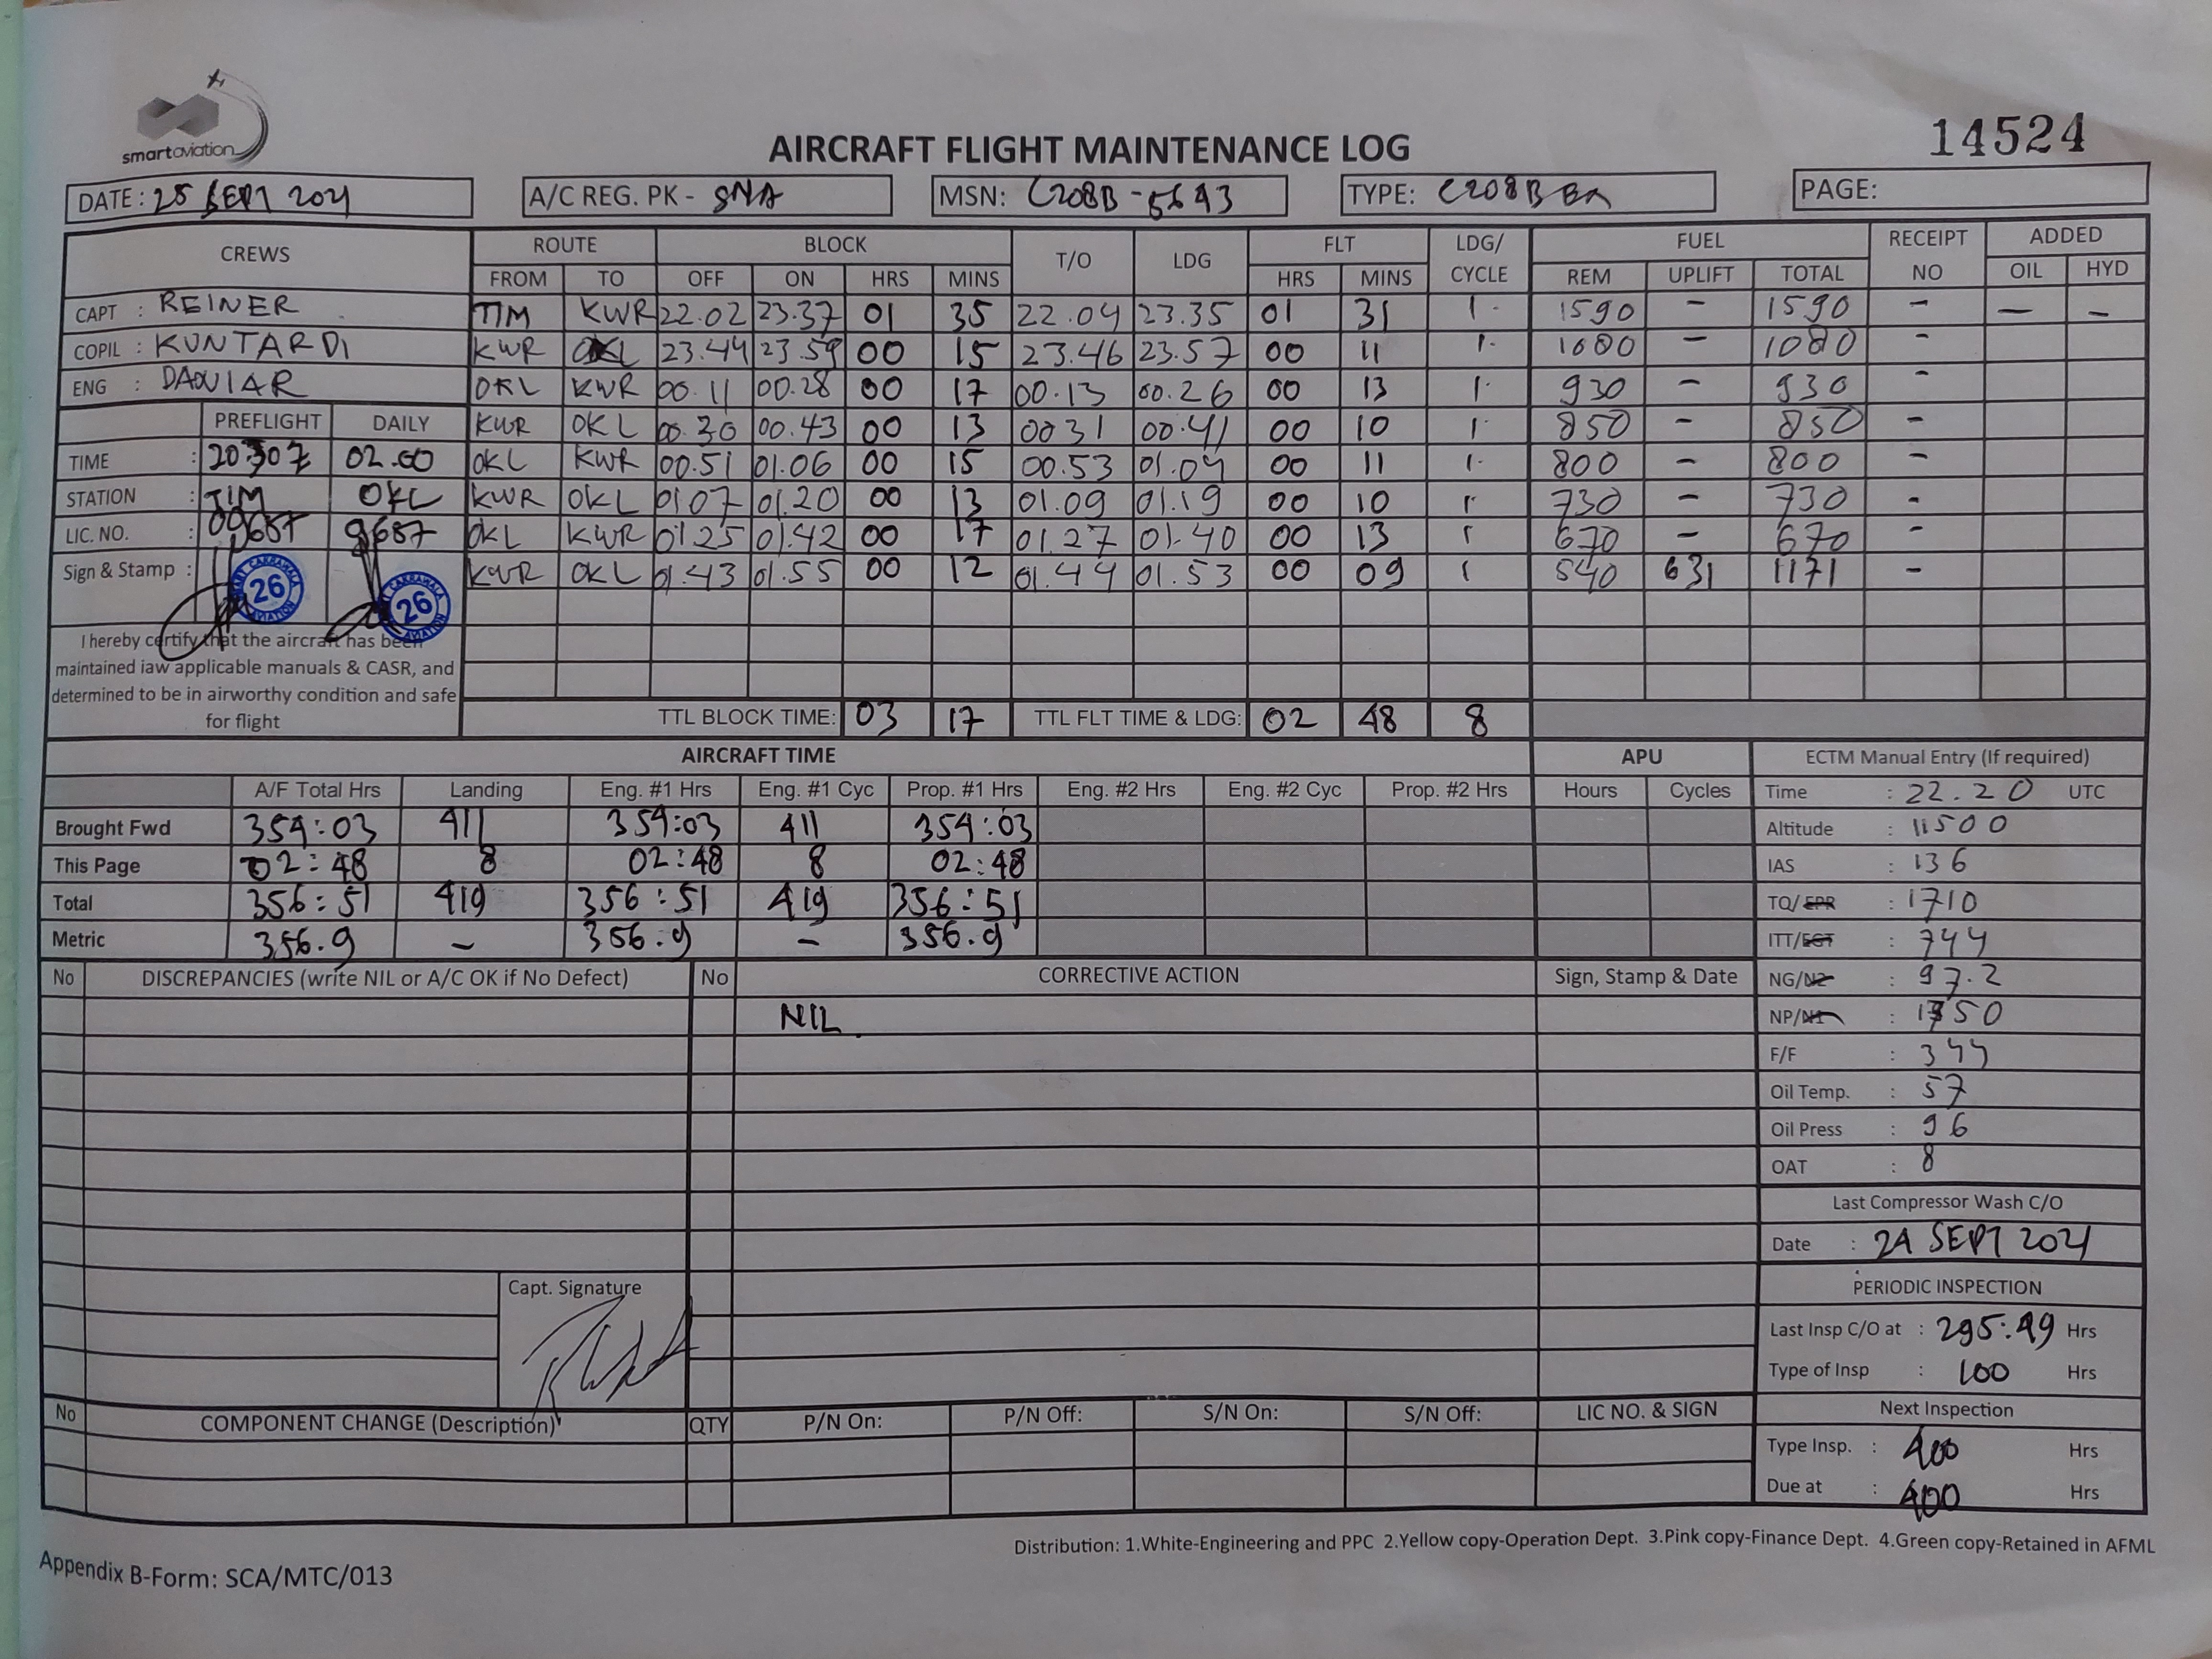 smartaviation
AIRCRAFT FLIGHT MAINTENANCE LOG
14524
DATE: 25 SEPT 2021 A/C REG. PK - SNA MSN: C208B - 5643 TYPE: C208B EX PAGE:
CREWS ROUTE BLOCK T/O LDG FLT LDG/ CYCLE FUEL RECEIPT NO ADDED
FROM TO OFF ON HRS MINS HRS MINS REM UPLIFT TOTAL OIL HYD
CAPT : REINER TIM KWR 22.02 23.37 01 35 22.04 23.35 01 31 1. 1590 - 1590 - - -
COPIL : KUNTARDI KWR OKL 23.44 23.59 00 15 23.46 23.57 00 11 1. 1080 - 1080 -
ENG : DANIAR OKL KWR 00.11 00.28 00 17 00.13 00.26 00 13 1. 930 - 930 -
PREFLIGHT DAILY KWR OKL 00.30 00.43 00 13 0031 00.41 00 10 1. 850 - 850 -
TIME : 20.30Z 02.00 OKL KWR 00.51 01.06 00 15 00.53 01.04 00 11 1. 800 - 800 -
STATION : TIM OKL KWR OKL 01.07 01.20 00 13 01.09 01.19 00 10 1. 730 - 730 -
LIC. NO. : 09687 9687 OKL KWR 01.25 01.42 00 17 01.27 01.40 00 13 1 670 - 670 -
Sign & Stamp : 26 26 KWR OKL 01.43 01.55 00 12 01.44 01.53 00 09 1 540 631 1171 -
I hereby certify that the aircraft has been
maintained iaw applicable manuals & CASR, and
determined to be in airworthy condition and safe
for flight
TTL BLOCK TIME: 03 17 TTL FLT TIME & LDG: 02 48 8
AIRCRAFT TIME APU ECTM Manual Entry (If required)
A/F Total Hrs Landing Eng. #1 Hrs Eng. #1 Cyc Prop. #1 Hrs Eng. #2 Hrs Eng. #2 Cyc Prop. #2 Hrs Hours Cycles Time : 22.20 UTC
Brought Fwd 354:03 411 354:03 411 354:03 Altitude : 11500
This Page 02:48 8 02:48 8 02:48 IAS : 136
Total 356:51 419 356:51 419 356:51 TQ/EPR : 1710
Metric 356.9 - 356.9 - 356.9 ITT/EGT : 744
No DISCREPANCIES (write NIL or A/C OK if No Defect) No CORRECTIVE ACTION Sign, Stamp & Date NG/N2 : 97.2
NIL NP/N1 : 1750
F/F : 344
Oil Temp. : 57
Oil Press : 96
OAT : 8
Last Compressor Wash C/O
Date : 24 SEPT 2021
Capt. Signature PERIODIC INSPECTION
Last Insp C/O at : 295:49 Hrs
Type of Insp : 100 Hrs
No COMPONENT CHANGE (Description) QTY P/N On: P/N Off: S/N On: S/N Off: LIC NO. & SIGN Next Inspection
Type Insp. : 400 Hrs
Due at : 400 Hrs
Distribution: 1.White-Engineering and PPC 2.Yellow copy-Operation Dept. 3.Pink copy-Finance Dept. 4.Green copy-Retained in AFML
Appendix B-Form: SCA/MTC/013